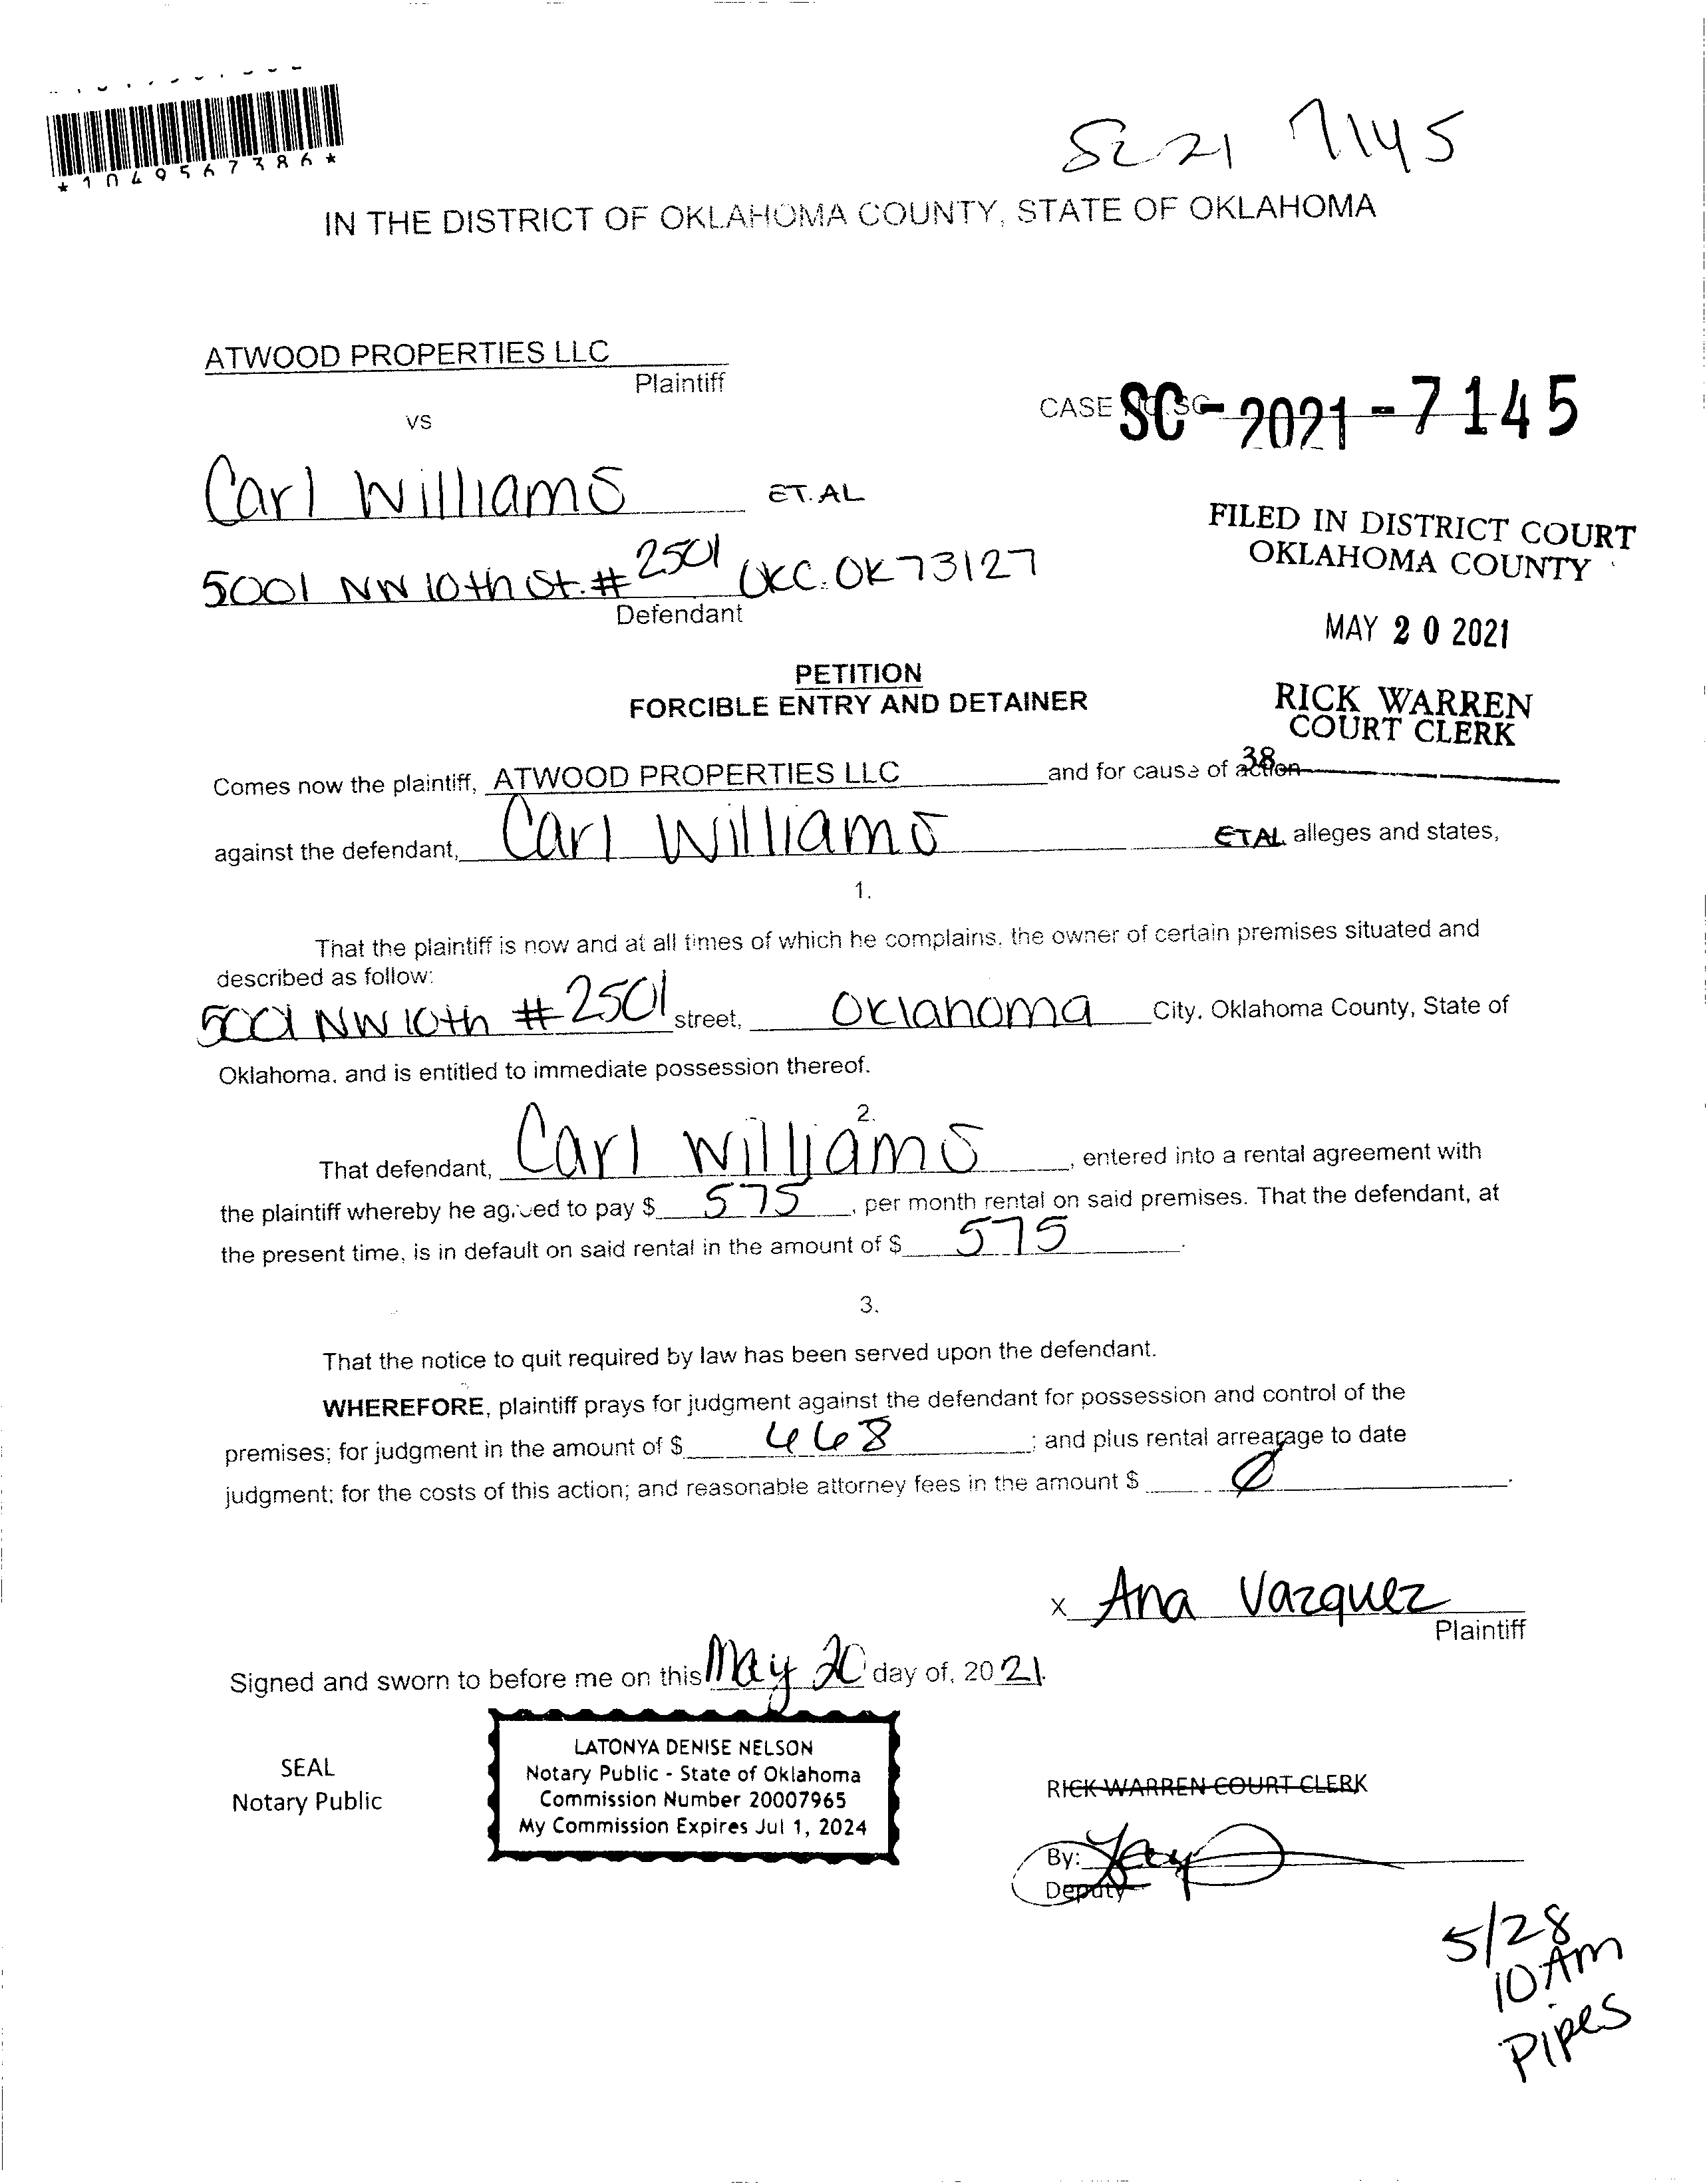 *1049567386*
SC 21 7145
IN THE DISTRICT OF OKLAHOMA COUNTY, STATE OF OKLAHOMA
ATWOOD PROPERTIES LLC
Plaintiff
VS
CASE SC-2021-7145
Carl Williams ET. AL
5001 NW 10th St. #2501 OKC. OK 73127
Defendant
FILED IN DISTRICT COURT
OKLAHOMA COUNTY
MAY 20 2021
RICK WARREN
COURT CLERK
38
PETITION
FORCIBLE ENTRY AND DETAINER
Comes now the plaintiff, ATWOOD PROPERTIES LLC and for cause of action
against the defendant, Carl Williams ETAL alleges and states,
1.
That the plaintiff is now and at all times of which he complains, the owner of certain premises situated and
described as follow:
5001 NW 10th #2501 street, Oklahoma City, Oklahoma County, State of
Oklahoma, and is entitled to immediate possession thereof.
2.
That defendant, Carl Williams, entered into a rental agreement with
the plaintiff whereby he agreed to pay $ 575, per month rental on said premises. That the defendant, at
the present time, is in default on said rental in the amount of $ 575.
3.
That the notice to quit required by law has been served upon the defendant.
WHEREFORE, plaintiff prays for judgment against the defendant for possession and control of the
premises; for judgment in the amount of $ 468; and plus rental arrearage to date
judgment; for the costs of this action; and reasonable attorney fees in the amount $ Ø.
x Ana Vazquez
Plaintiff
Signed and sworn to before me on this May 20 day of, 2021.
SEAL
Notary Public
LATONYA DENISE NELSON
Notary Public - State of Oklahoma
Commission Number 20007965
My Commission Expires Jul 1, 2024
RICK WARREN COURT CLERK
By:
Deputy
5/28
10 AM
Pipes